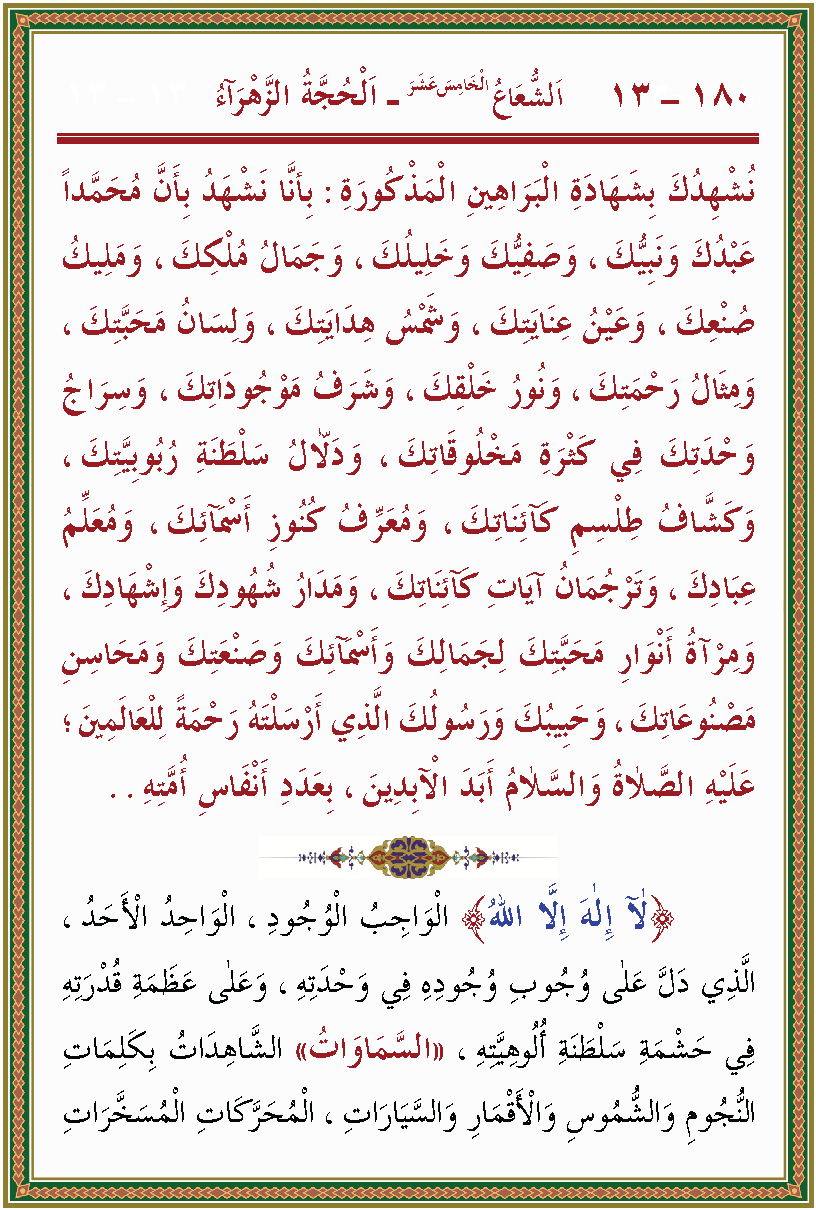 ١٨٠ – ١٣ اَلشُّعَاعُ الْخَامِسَ عَشَرَ - اَلْحُجَّةُ الزَّهْرَآءُ ١٣ – ١٣
نُشْهِدُكَ بِشَهَادَةِ الْبَرَاهِينِ الْمَذْكُورَةِ : بِأَنَّا نَشْهَدُ بِأَنَّ مُحَمَّداً
عَبْدُكَ وَنَبِيُّكَ ، وَصَفِيُّكَ وَخَلِيلُكَ ، وَجَمَالُ مُلْكِكَ ، وَمَلِيكُ
صُنْعِكَ ، وَعَيْنُ عِنَايَتِكَ ، وَشَمْسُ هِدَايَتِكَ ، وَلِسَانُ مَحَبَّتِكَ ،
وَمِثَالُ رَحْمَتِكَ ، وَنُورُ خَلْقِكَ ، وَشَرَفُ مَوْجُودَاتِكَ ، وَسِرَاجُ
وَحْدَتِكَ فِي كَثْرَةِ مَخْلُوقَاتِكَ ، وَدَلَّالُ سَلْطَنَةِ رُبُوبِيَّتِكَ ،
وَكَشَّافُ طِلْسِمِ كَآئِنَاتِكَ ، وَمُعَرِّفُ كُنُوزِ أَسْمَآئِكَ ، وَمُعَلِّمُ
عِبَادِكَ ، وَتَرْجُمَانُ آيَاتِ كَآئِنَاتِكَ ، وَمَدَارُ شُهُودِكَ وَإِشْهَادِكَ ،
وَمِرْآةُ أَنْوَارِ مَحَبَّتِكَ لِجَمَالِكَ وَأَسْمَآئِكَ وَصَنْعَتِكَ وَمَحَاسِنِ
مَصْنُوعَاتِكَ ، وَحَبِيبُكَ وَرَسُولُكَ الَّذِي أَرْسَلْتَهُ رَحْمَةً لِلْعَالَمِينَ ؛
عَلَيْهِ الصَّلاٰةُ وَالسَّلاٰمُ أَبَدَ الْآبِدِينَ ، بِعَدَدِ أَنْفَاسِ أُمَّتِهِ . .
﴿لٰآ إِلٰهَ إِلَّا اللهُ﴾ الْوَاجِبُ الْوُجُودِ ، الْوَاحِدُ الْأَحَدُ ،
الَّذِي دَلَّ عَلٰى وُجُوبِ وُجُودِهِ فِي وَحْدَتِهِ ، وَعَلٰى عَظَمَةِ قُدْرَتِهِ
فِي حَشْمَةِ سَلْطَنَةِ أُلُوهِيَّتِهِ ، «السَّمَاوَاتُ» الشَّاهِدَاتُ بِكَلِمَاتِ
النُّجُومِ وَالشُّمُوسِ وَالْأَقْمَارِ وَالسَّيَارَاتِ ، الْمُحَرَّكَاتِ الْمُسَخَّرَاتِ